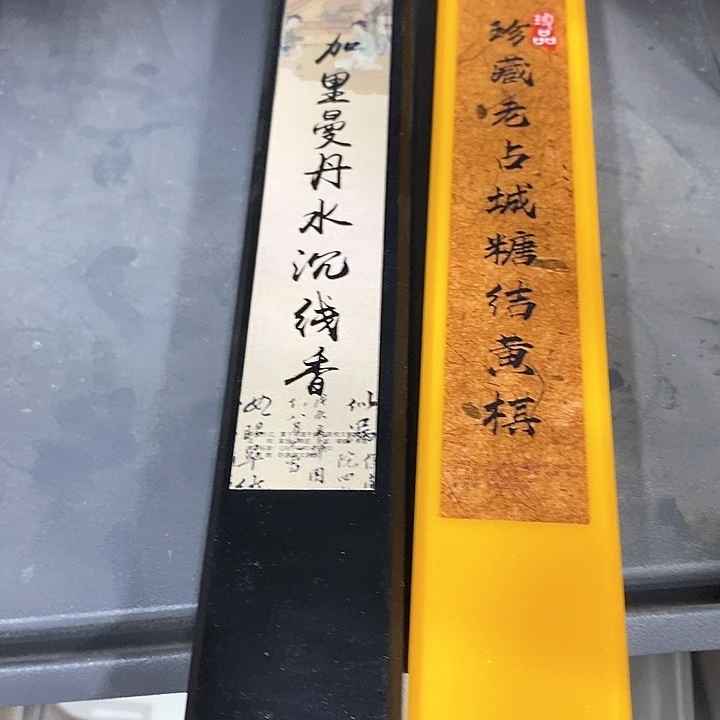 加里曼丹水沉线香
珍品
珍藏老占城糖结黄棋